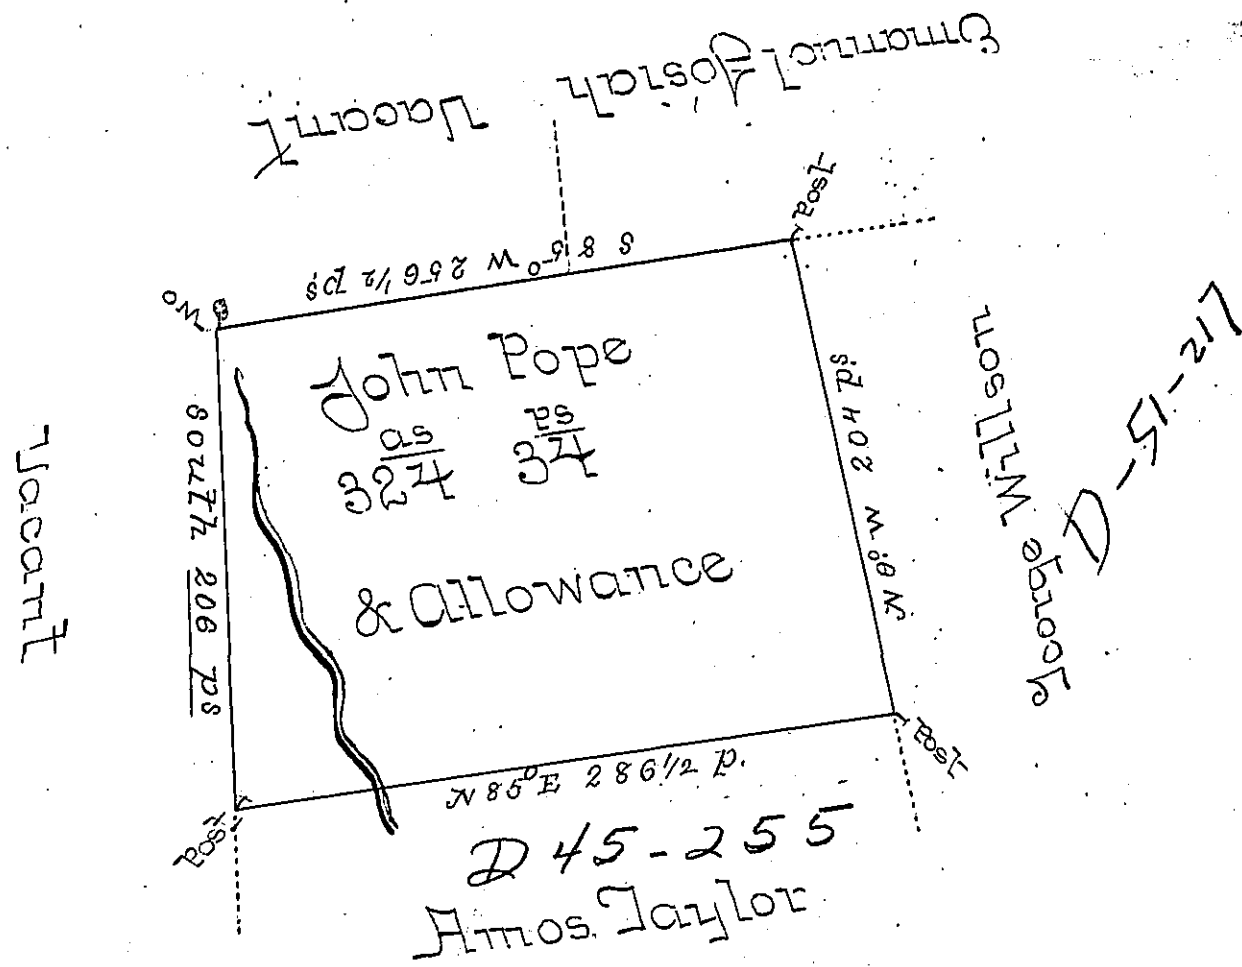 Emanuel Josiah
Vacant
Post
S 85° W 256 1/2 ps
WO
John Pope
as ps
324 34
& Allowance
South 206 ps
Vacant
N 8° W 204 ps
George Willson
D-51-217
Post
N 85° E 286 1/2 p.
Post
D 45-255
Amos Taylor